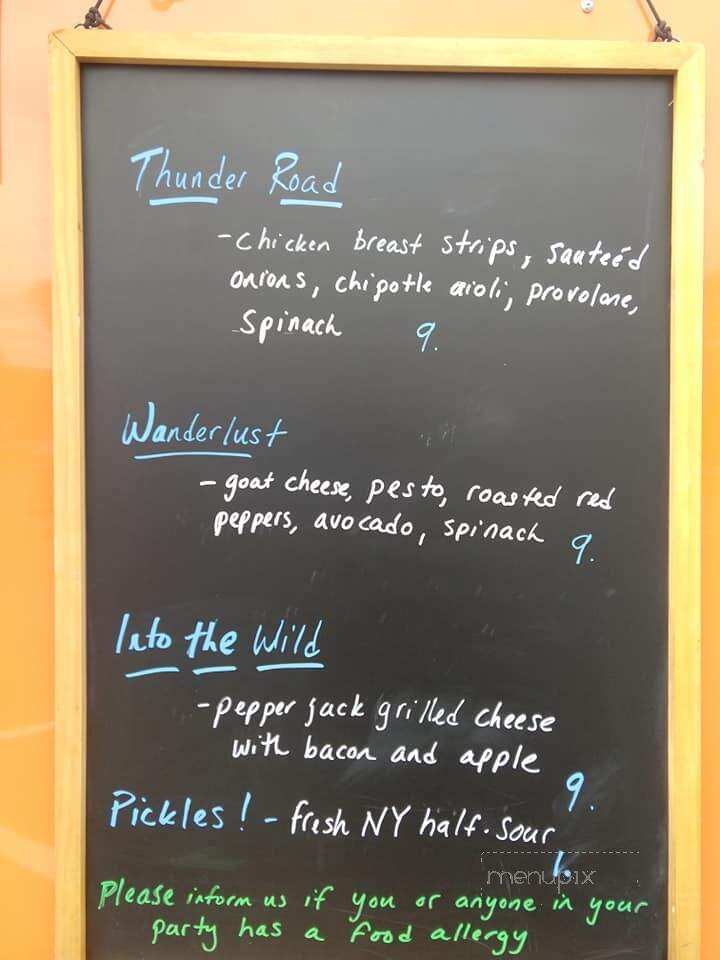 Thunder Road
-Chicken breast strips, sauteéd
onions, chipotle aioli, provolone,
Spinach 9.
Wanderlust
- goat cheese, pesto, roasted red
peppers, avocado, spinach 9.
Into the Wild
-pepper jack grilled cheese
with bacon and apple
9.
Pickles! - fresh NY half-sour
menupix
Please inform us if you or anyone in your
party has a food allergy